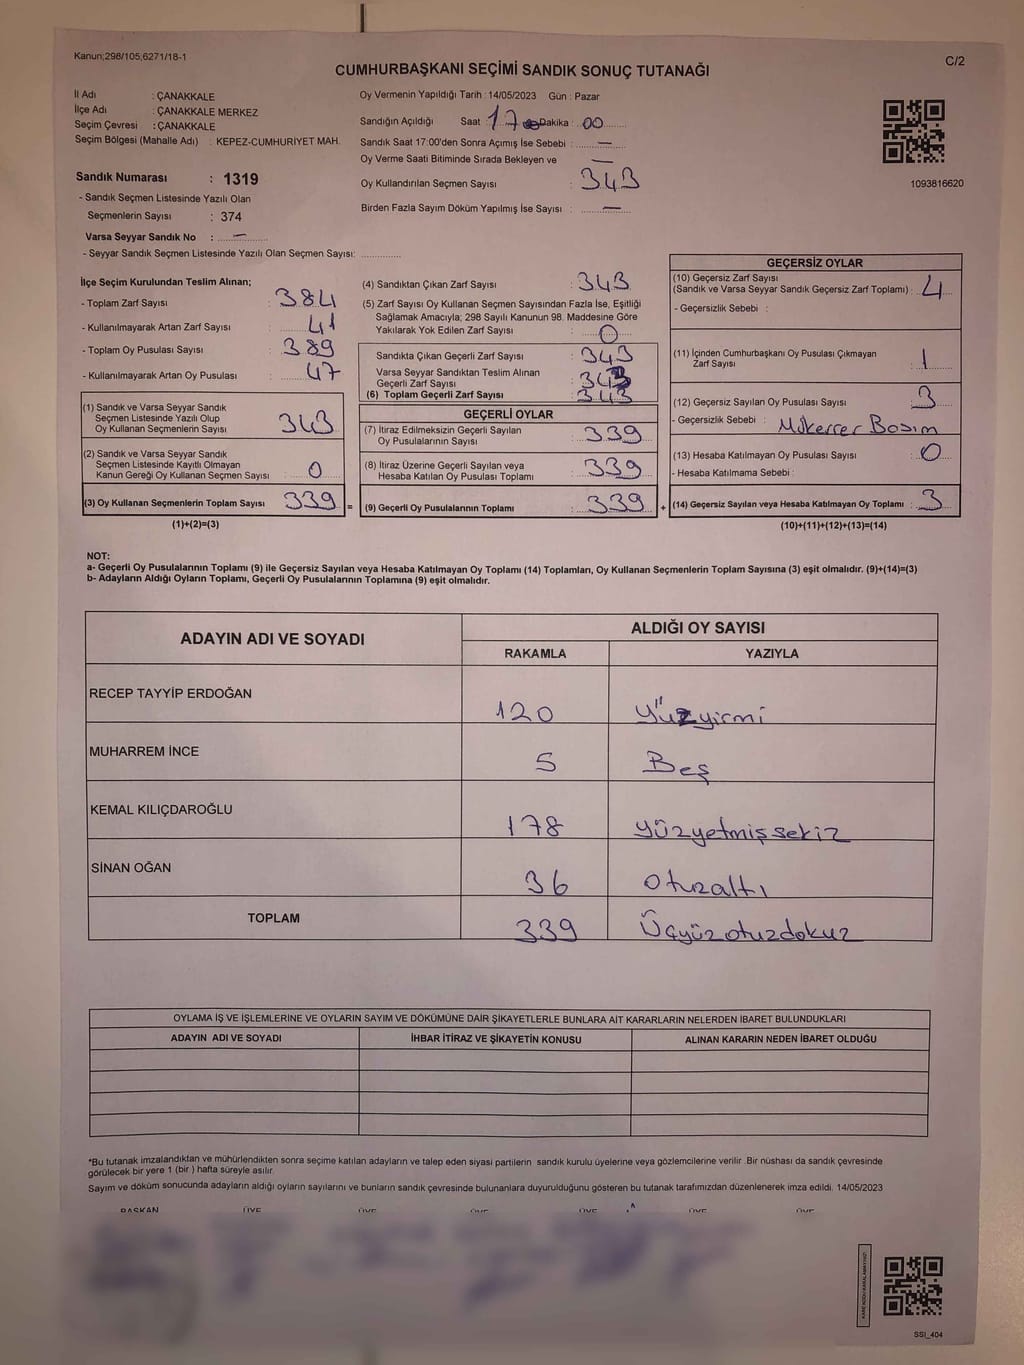 Kanun;298/105;6271/18-1
C/2
CUMHURBAŞKANI SEÇİMİ SANDIK SONUÇ TUTANAĞI
İl Adı : ÇANAKKALE
İlçe Adı : ÇANAKKALE MERKEZ
Seçim Çevresi : ÇANAKKALE
Seçim Bölgesi (Mahalle Adı) : KEPEZ-CUMHURİYET MAH.
Sandık Numarası : 1319
- Sandık Seçmen Listesinde Yazılı Olan
Seçmenlerin Sayısı : 374
Varsa Seyyar Sandık No : —
- Seyyar Sandık Seçmen Listesinde Yazılı Olan Seçmen Sayısı: ..............
Oy Vermenin Yapıldığı Tarih : 14/05/2023 Gün : Pazar
Sandığın Açıldığı Saat : 17 Dakika : 00
Sandık Saat 17:00'den Sonra Açımış İse Sebebi : —
Oy Verme Saati Bitiminde Sırada Bekleyen ve —
Oy Kullandırılan Seçmen Sayısı : 343
Birden Fazla Sayım Döküm Yapılmış İse Sayısı : —
1093816620
İlçe Seçim Kurulundan Teslim Alınan;
- Toplam Zarf Sayısı : 384
- Kullanılmayarak Artan Zarf Sayısı : 41
- Toplam Oy Pusulası Sayısı : 389
- Kullanılmayarak Artan Oy Pusulası : 47
(1) Sandık ve Varsa Seyyar Sandık
Seçmen Listesinde Yazılı Olup
Oy Kullanan Seçmenlerin Sayısı : 343
(2) Sandık ve Varsa Seyyar Sandık
Seçmen Listesinde Kayıtlı Olmayan
Kanun Gereği Oy Kullanan Seçmen Sayısı : 0
(3) Oy Kullanan Seçmenlerin Toplam Sayısı : 339 =
(1)+(2)=(3)
(4) Sandıktan Çıkan Zarf Sayısı : 343
(5) Zarf Sayısı Oy Kullanan Seçmen Sayısından Fazla İse, Eşitliği
Sağlamak Amacıyla; 298 Sayılı Kanunun 98. Maddesine Göre
Yakılarak Yok Edilen Zarf Sayısı : 0
Sandıkta Çıkan Geçerli Zarf Sayısı : 343
Varsa Seyyar Sandıktan Teslim Alınan
Geçerli Zarf Sayısı : 343
(6) Toplam Geçerli Zarf Sayısı : 343
GEÇERLİ OYLAR
(7) İtiraz Edilmeksizin Geçerli Sayılan
Oy Pusulalarının Sayısı : 339
(8) İtiraz Üzerine Geçerli Sayılan veya
Hesaba Katılan Oy Pusulası Toplamı : 339
(9) Geçerli Oy Pusulalarının Toplamı : 339 +
GEÇERSİZ OYLAR
(10) Geçersiz Zarf Sayısı
(Sandık ve Varsa Seyyar Sandık Geçersiz Zarf Toplamı) : 4
- Geçersizlik Sebebi :
(11) İçinden Cumhurbaşkanı Oy Pusulası Çıkmayan
Zarf Sayısı : 1
(12) Geçersiz Sayılan Oy Pusulası Sayısı : 3
- Geçersizlik Sebebi : Mükerrer Basım
(13) Hesaba Katılmayan Oy Pusulası Sayısı : 0
- Hesaba Katılmama Sebebi :
(14) Geçersiz Sayılan veya Hesaba Katılmayan Oy Toplamı : 3
(10)+(11)+(12)+(13)=(14)
NOT:
a- Geçerli Oy Pusulalarının Toplamı (9) ile Geçersiz Sayılan veya Hesaba Katılmayan Oy Toplamı (14) Toplamları, Oy Kullanan Seçmenlerin Toplam Sayısına (3) eşit olmalıdır. (9)+(14)=(3)
b- Adayların Aldığı Oyların Toplamı, Geçerli Oy Pusulalarının Toplamına (9) eşit olmalıdır.
ADAYIN ADI VE SOYADI
ALDIĞI OY SAYISI
RAKAMLA YAZIYLA
RECEP TAYYİP ERDOĞAN 120 Yüzyirmi
MUHARREM İNCE 5 Beş
KEMAL KILIÇDAROĞLU 178 yüzyetmişsekiz
SİNAN OĞAN 36 otuzaltı
TOPLAM 339 Üçyüzotuzdokuz
OYLAMA İŞ VE İŞLEMLERİNE VE OYLARIN SAYIM VE DÖKÜMÜNE DAİR ŞİKAYETLERLE BUNLARA AİT KARARLARIN NELERDEN İBARET BULUNDUKLARI
ADAYIN ADI VE SOYADI İHBAR İTİRAZ VE ŞİKAYETİN KONUSU ALINAN KARARIN NEDEN İBARET OLDUĞU
*Bu tutanak imzalandıktan ve mühürlendikten sonra seçime katılan adayların ve talep eden siyasi partilerin sandık kurulu üyelerine veya gözlemcilerine verilir .Bir nüshası da sandık çevresinde
görülecek bir yere 1 (bir ) hafta süreyle asılır.
Sayım ve döküm sonucunda adayların aldığı oyların sayılarını ve bunların sandık çevresinde bulunanlara duyurulduğunu gösteren bu tutanak tarafımızdan düzenlenerek imza edildi. 14/05/2023
BAŞKAN ÜYE ÜYE ÜYE ÜYE ÜYE ÜYE
SSI_404